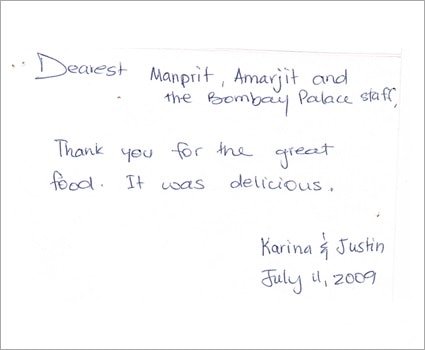 Dearest Manprit, Amarjit and
the Bombay Palace staff,
Thank you for the great
food. It was delicious.
Karina & Justin
July 11, 2009